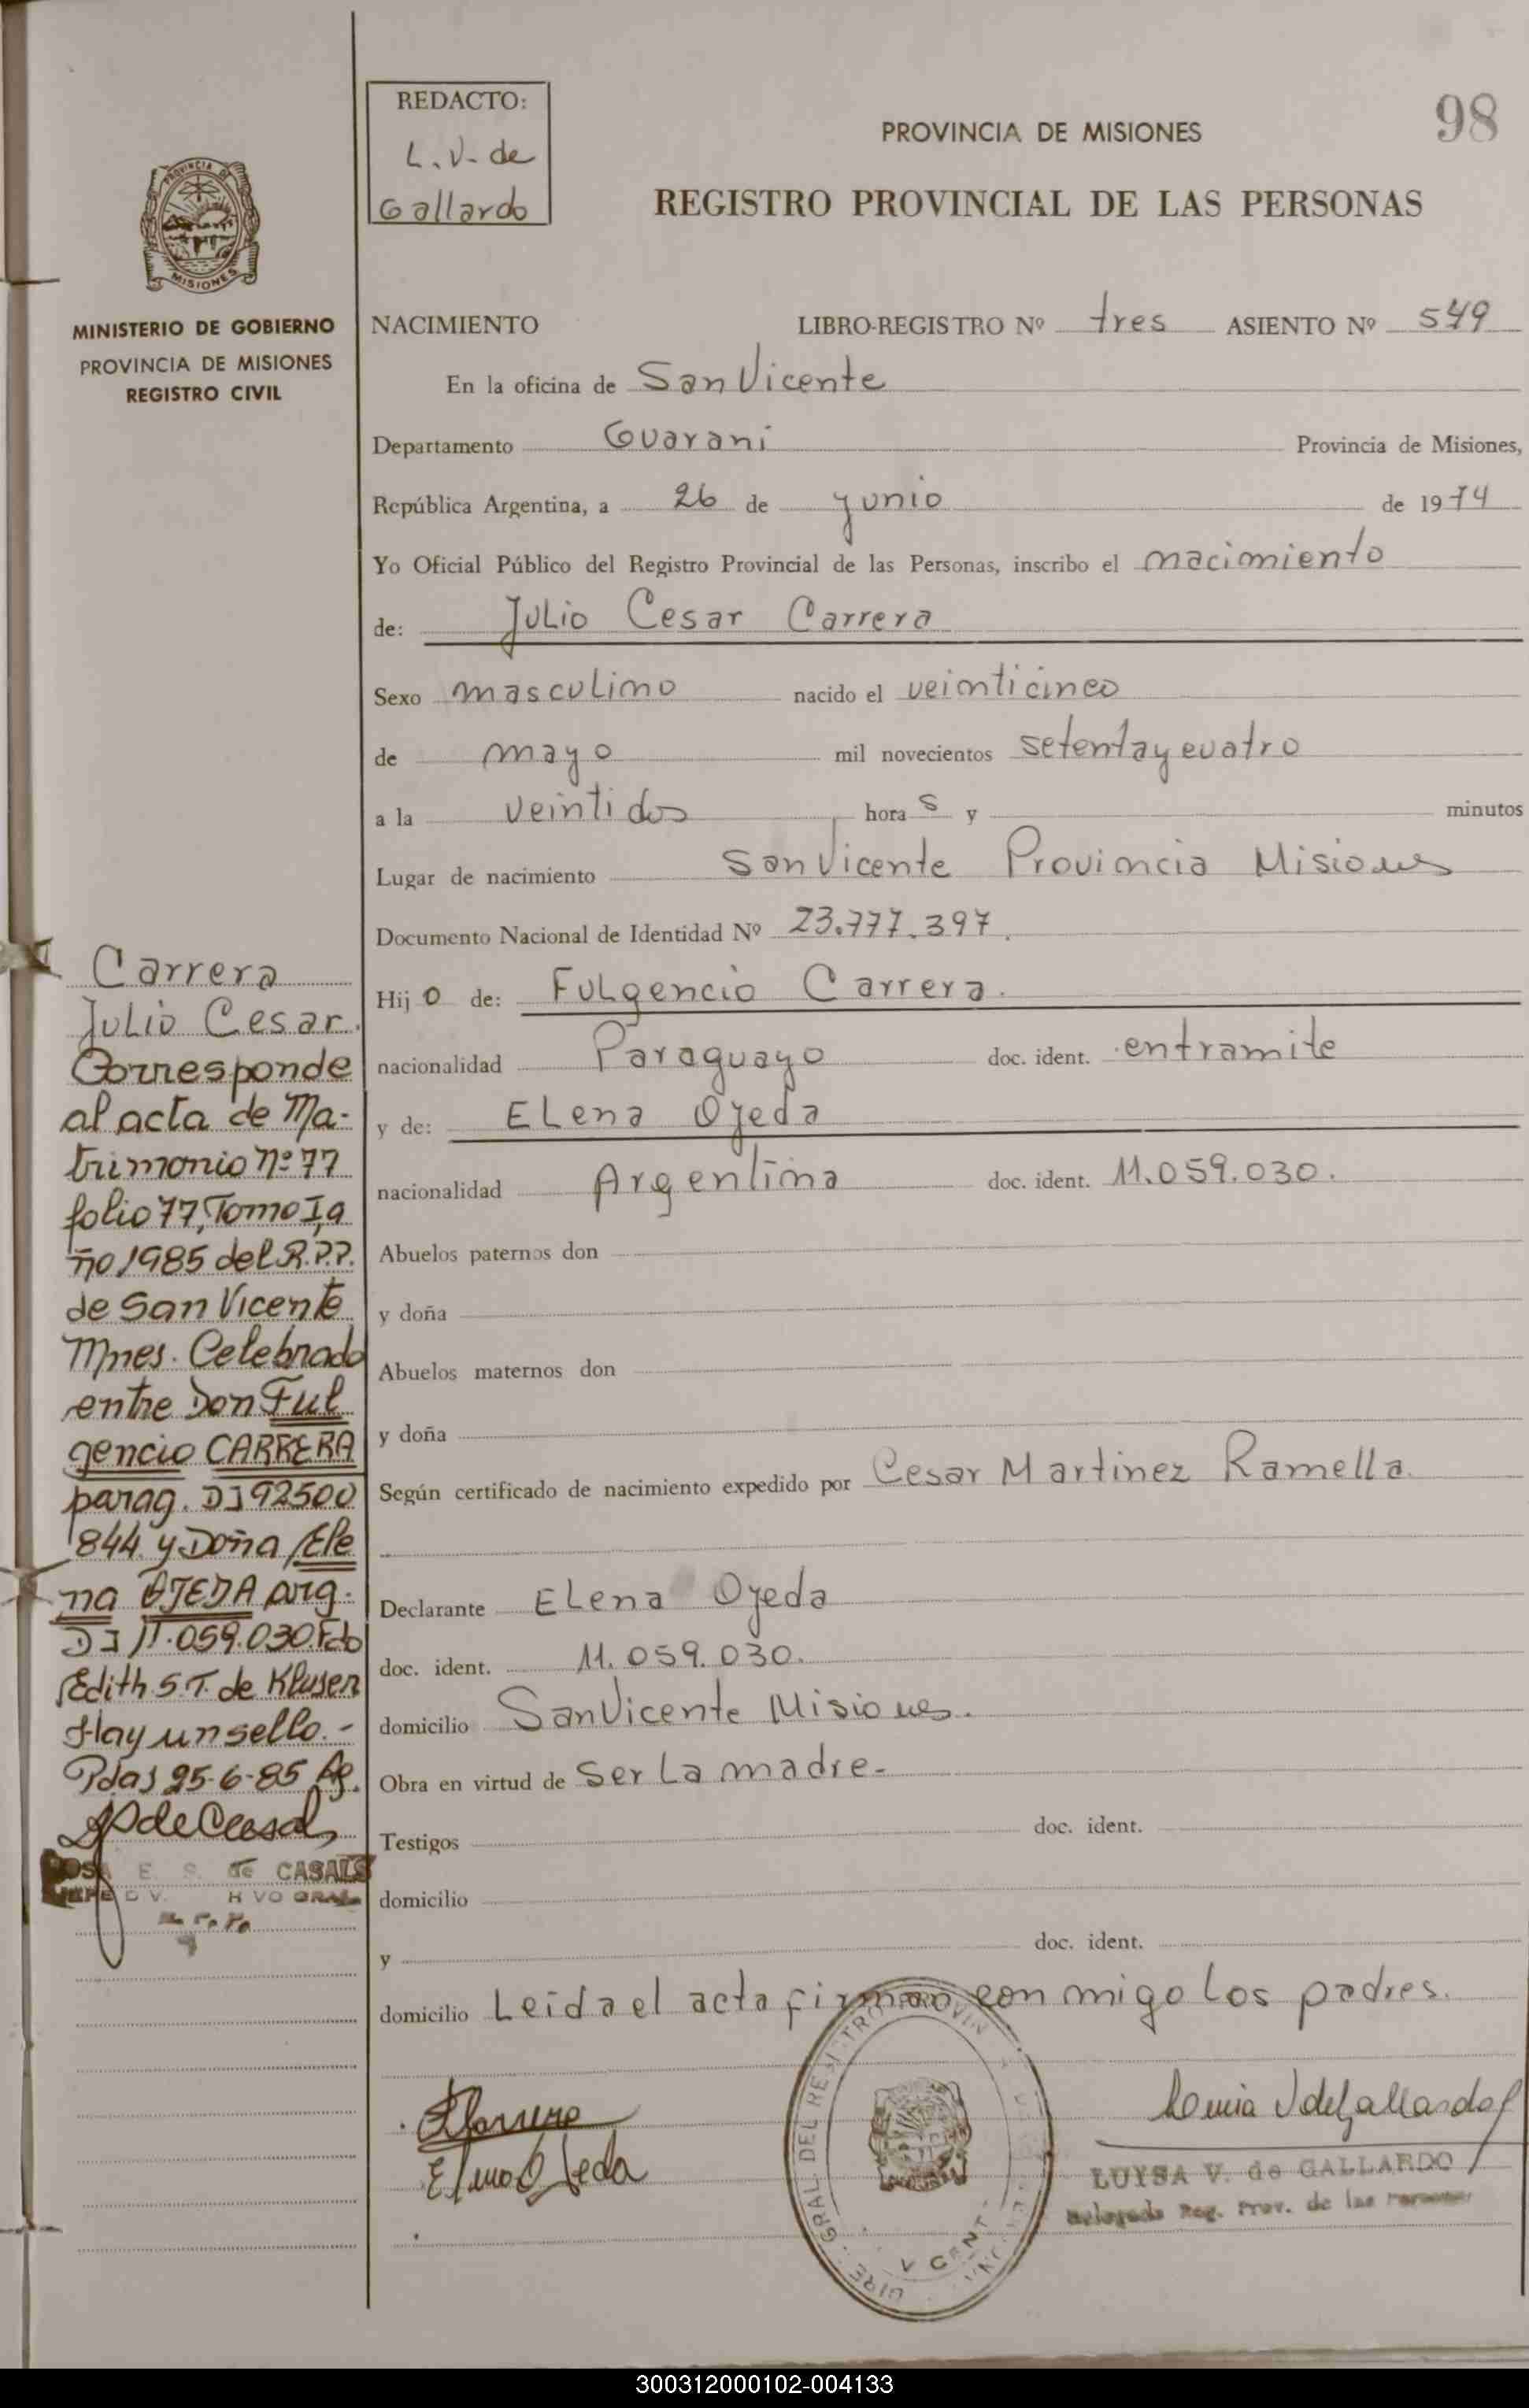 REDACTO:
L. V. de
Gallardo
98
PROVINCIA DE MISIONES
REGISTRO PROVINCIAL DE LAS PERSONAS
PROVINCIA DE
MISIONES
MINISTERIO DE GOBIERNO
PROVINCIA DE MISIONES
REGISTRO CIVIL
NACIMIENTO LIBRO-REGISTRO Nº tres ASIENTO Nº 549
En la oficina de San Vicente
Departamento Guarani Provincia de Misiones,
República Argentina, a 26 de Junio de 1974
Yo Oficial Público del Registro Provincial de las Personas, inscribo el nacimiento
de: Julio Cesar Carrera
Sexo masculino nacido el veinticinco
de mayo mil novecientos setenta y cuatro
a la veintidos hora s y minutos
Lugar de nacimiento San Vicente Provincia Misiones
Documento Nacional de Identidad Nº 23.777.397.
Hij o de: Fulgencio Carrera.
nacionalidad Paraguayo doc. ident. entramite
y de: Elena Ojeda
nacionalidad Argentina doc. ident. 11.059.030.
Abuelos paternos don
y doña
Abuelos maternos don
y doña
Según certificado de nacimiento expedido por Cesar Martinez Ramella.
Declarante Elena Ojeda
doc. ident. 11.059.030.
domicilio San Vicente Misiones.
Obra en virtud de Ser La madre.
Testigos doc. ident.
domicilio
y doc. ident.
domicilio Leida el acta firman con migo los padres.
Carrera
Julio Cesar.
Corresponde
al acta de Ma-
trimonio nº 77
folio 77, Tomo I, a
ño 1985 del R.P.P.
de San Vicente
Mnes. Celebrado
entre Don Ful
gencio CARRERA
parag. DI 92500
844 y Doña Ele
na OJEDA arg.
DI 11.059.030. Fdo
Edith S. T. de Klusen
Hay un sello.-
Pdas 25-6-85
E. S. de CASALS
Elena Ojeda
GRAL DEL REGISTRO PROVIN
LUYSA V. de GALLARDO
Delegada Reg. Prov. de las Personas
300312000102-004133